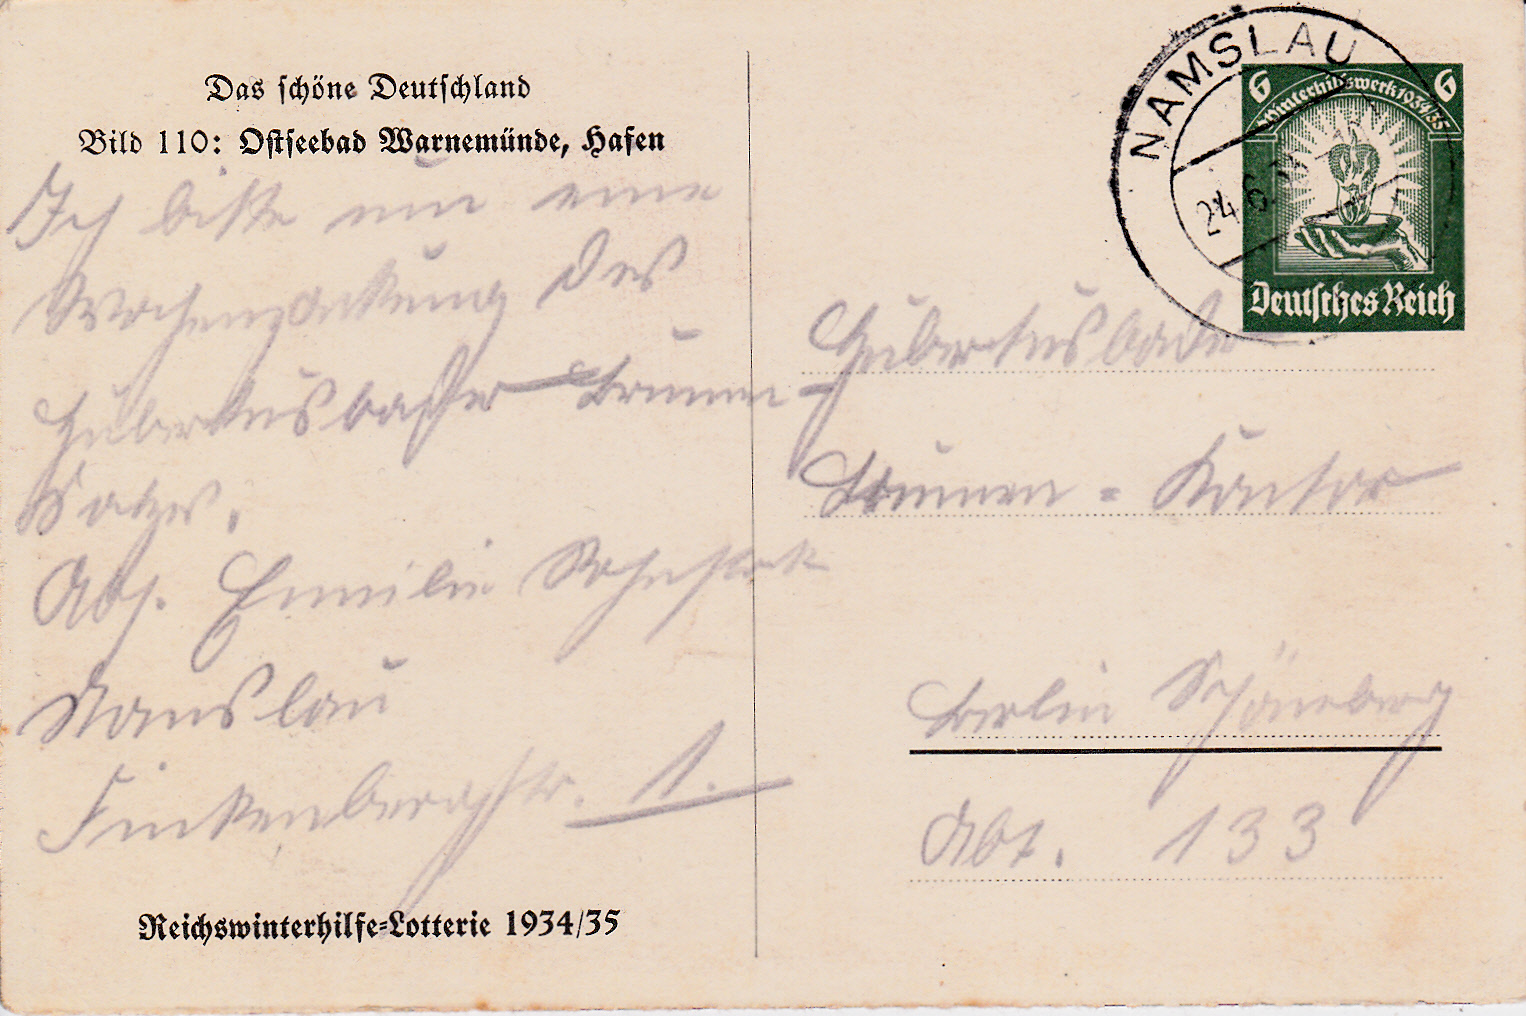 Das schöne Deutschland
Bild 110: Ostseebad Warnemünde, Hafen
Ich bitte um eine
Wochenpackung des
Hubertusbader Brunnen-
Salzes.
Abs. Emilie
Namslau
Finkenbergstr. 1.
Reichswinterhilfe-Lotterie 1934/35
NAMSLAU
24.6.
6 6
Winterhilfswerk 1934/35
Deutsches Reich
Hubertusbader
Brunnen = Kontor
Berlin Schöneberg
Abt. 133